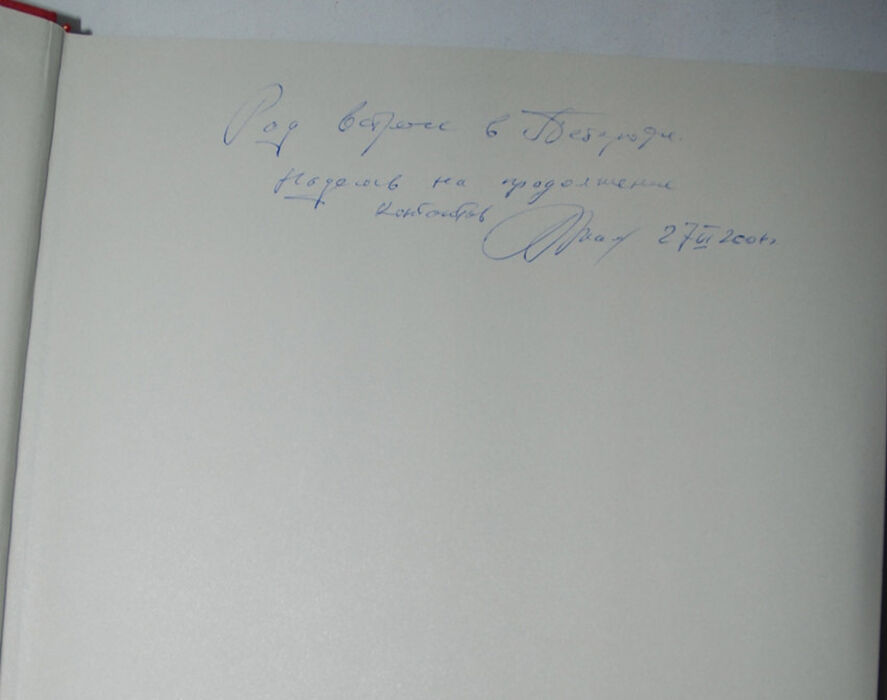 Рад встрече в Петергофе.
Надеюсь на продолжение
контактов 27 VI 2001г.